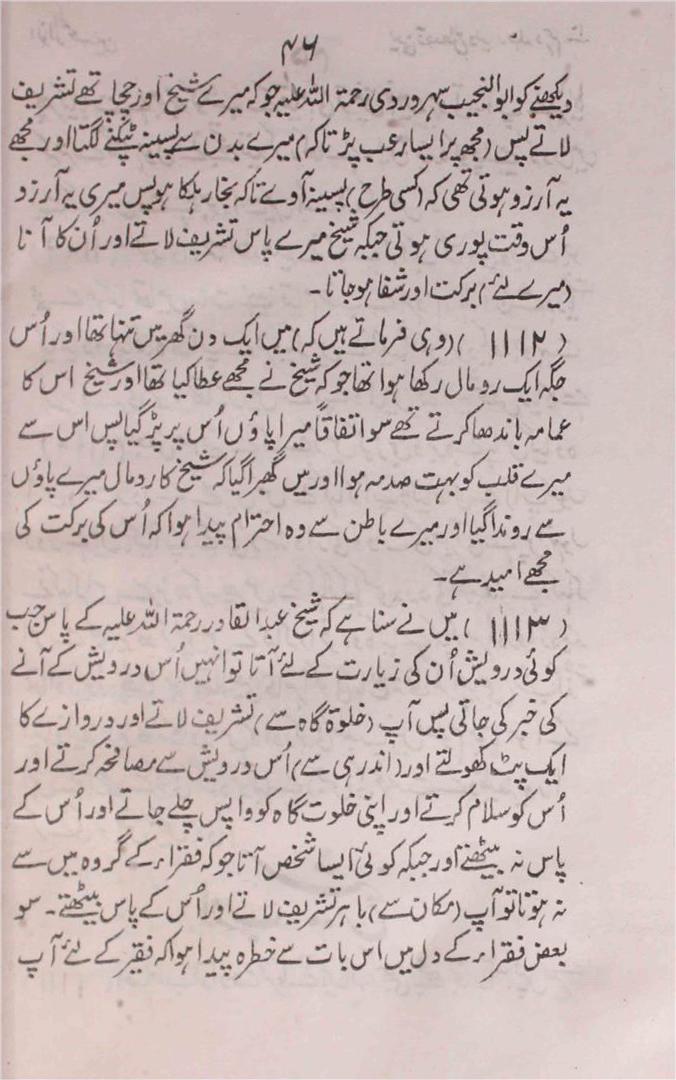 ۴۶
دیکھنے کو ابوالنجیب سہروردی رحمۃ اللہ علیہ جو کہ میرے شیخ اور چچا تھے تشریف
لاتے پس (مجھ پر ایسا رعب پڑتا کہ) میرے بدن سے پسینہ ٹپکنے لگتا اور مجھے
یہ آرزو ہوتی تھی کہ (کسی طرح) پسینہ آوے تاکہ بخار ہلکا ہو پس میری یہ آرزو
اُس وقت پوری ہوتی جبکہ شیخ میرے پاس تشریف لاتے اور اُن کا آنا
(میرے لئے) برکت اور شفا ہو جاتا۔
(۱۱۱۲) (وہی فرماتے ہیں کہ) میں ایک دن گھر میں تنہا تھا اور اُس
جگہ ایک رومال رکھا ہوا تھا جو کہ شیخ نے مجھے عطا کیا تھا اور شیخ اس کا
عمامہ باندھا کرتے تھے سو اتفاقاً میرا پاؤں اُس پر پڑ گیا پس اس سے
میرے قلب کو بہت صدمہ ہوا اور میں گھبرا گیا کہ شیخ کا رومال میرے پاؤں
سے روندا گیا اور میرے باطن سے وہ احترام پیدا ہوا کہ اُس کی برکت کی
مجھے امید ہے۔
(۱۱۱۳) میں نے سنا ہے کہ شیخ عبدالقادر رحمۃ اللہ علیہ کے پاس جب
کوئی درویش اُن کی زیارت کے لئے آتا تو انہیں اُس درویش کے آنے
کی خبر کی جاتی پس آپ (خلوۃ گاہ سے) تشریف لاتے اور دروازے کا
ایک پٹ کھولتے اور (اندر ہی سے) اُس درویش سے مصافحہ کرتے اور
اُس کو سلام کرتے اور اپنی خلوت گاہ کو واپس چلے جاتے اور اُس کے
پاس نہ بیٹھتے اور جبکہ کوئی ایسا شخص آتا جو کہ فقراء کے گروہ میں سے
نہ ہوتا تو آپ (مکان سے) باہر تشریف لاتے اور اُس کے پاس بیٹھتے۔ سو
بعض فقراء کے دل میں اس بات سے خطرہ پیدا ہوا کہ فقیر کے لئے آپ